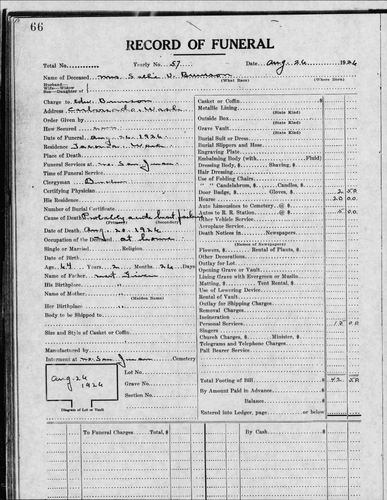 66
RECORD OF FUNERAL
Total No. Yearly No. 57 Date Aug 26 1926
Name of Deceased Mrs.
(What Race) (Where Born)
Husband
Wife—Widow
Son—Daughter of
Charge to
Address Wash
Order Given by
How Secured
Date of Funeral Aug 26, 1926
Residence Tacoma, Wash
Place of Death
Funeral Services at
Time of Funeral Service
Clergyman
Certifying Physician
His Residence
Number of Burial Certificate
Cause of Death Probably
(Primary) (Secondary)
Date of Death Aug. 1926
Occupation of the Deceased at home
Single or Married Religion
Date of Birth
Age 64 Years 2 Months 26 Days
Name of Father
His Birthplace
Name of Mother
(Maiden Name)
Her Birthplace
Body to be Shipped to
Size and Style of Casket or Coffin
Manufactured by
Interment at Cemetery
Lot No.
Grave No.
Section No.
Aug-26
1926
Diagram of Lot or Vault
Casket or Coffin
Metallic Lining
(State Kind)
Outside Box
(State Kind)
Grave Vault
(State Kind)
Burial Suit or Dress
Burial Slippers and Hose
Engraving Plate
Embalming Body (with Fluid)
Dressing Body, $ Shaving, $
Hair Dressing
Use of Folding Chairs
" " Candelabrum, $ Candles, $
Door Badge, $ Gloves, $ 2 50
Hearse 20 00
Auto Limousines to Cemetery @ $
Autos to R. R. Station @ $ 5 00
Aeroplane Service
Death Notices in Newspapers
(Names of Newspapers)
Flowers, $ Rental of Plants, $
Other Decorations
Outlay for Lot
Opening Grave or Vault
Lining Grave with Evergreen or Muslin
Matting, $ Tent Rental, $
Use of Lowering Device
Rental of Vault
Outlay for Shipping Charges
Removal Charges
Incineration
Personal Services 15 00
Singers
Church Charges, $ Minister, $
Telegrams and Telephone Charges
Pall Bearer Service
Total Footing of Bill $ 42 50
By Amount Paid in Advance
Balance $
Entered into Ledger, page or below
To Funeral Charges Total, $ By Cash $